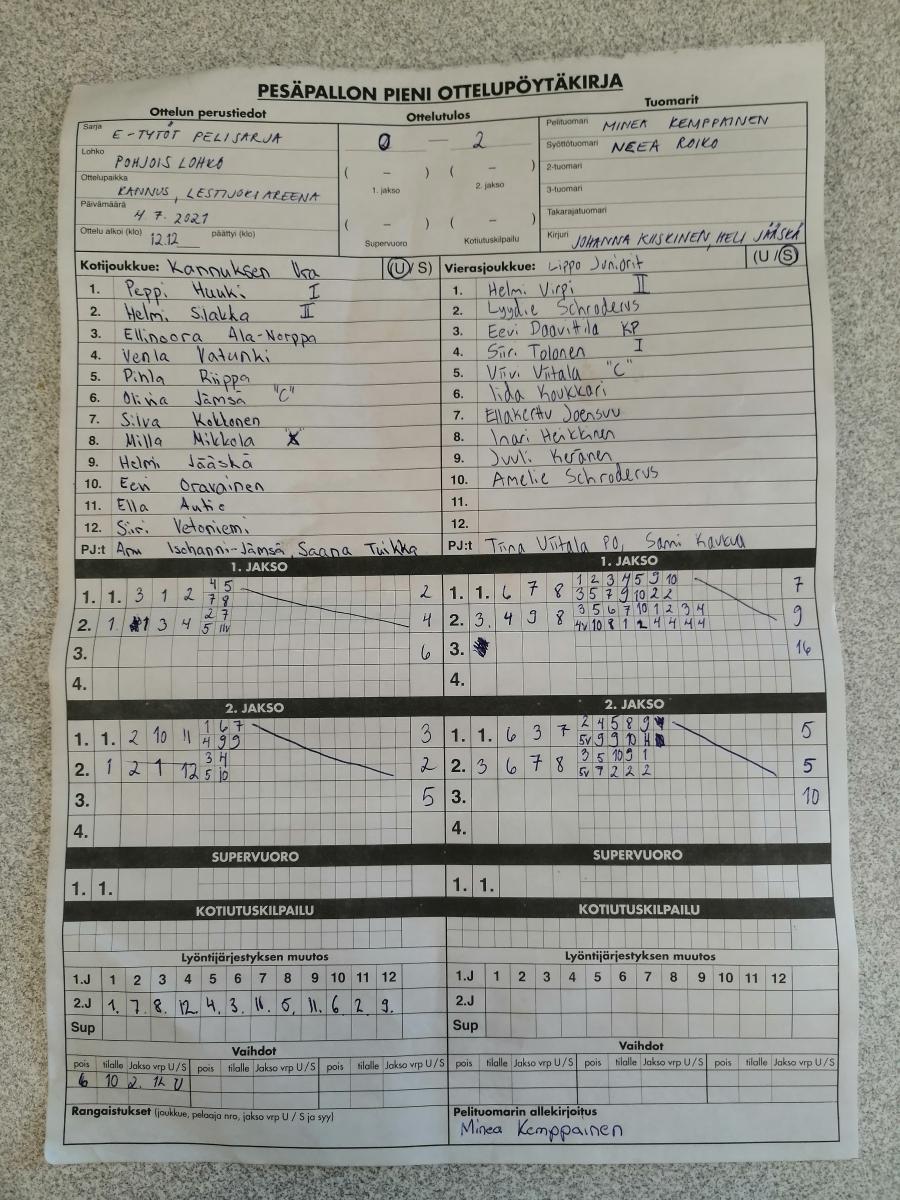 PESÄPALLON PIENI OTTELUPÖYTÄKIRJA
Ottelun perustiedot
Ottelutulos
Tuomarit
Sarja E-TYTÖT PELISARJA
Lohko POHJOIS LOHKO
Ottelupaikka KANNUS, LESTIJOKIAREENA
Päivämäärä 4.7.2021
Ottelu alkoi (klo) 12.12 päättyi (klo)
0 — 2
( – ) ( – )
1. jakso 2. jakso
( – ) ( – )
Supervuoro Kotiutuskilpailu
Pelituomari MINEA KEMPPAINEN
Syöttötuomari NEEA ROIKO
2-tuomari
3-tuomari
Takarajatuomari
Kirjuri JOHANNA KIISKINEN, HELI JÄÄSKÄ
Kotijoukkue: Kannuksen Ura (U/S)
1. Peppi Huuki I
2. Helmi Slakka II
3. Ellinoora Ala-Norppa
4. Venla Vatunki
5. Pihla Riippa
6. Olivia Jämsä "C"
7. Silva Kokkonen
8. Milla Mikkola
9. Helmi Jääskä
10. Eevi Oravainen
11. Ella Autio
12. Siiri Vetoniemi
PJ:t Anu Isohanni-Jämsä, Saana Tuikka
Vierasjoukkue: Lippo Juniorit (U/S)
1. Helmi Virpi II
2. Lyydie Schroderus
3. Eevi Daavittila KP
4. Siiri Tolonen I
5. Viivi Viitala "C"
6. Iida Koukkari
7. Ellakerttu Joensuu
8. Inari Heikkinen
9. Juuli Keränen
10. Amelie Schroderus
11.
12.
PJ:t Tiina Viitala PO, Sami Kaukua
1. JAKSO
1. 1. 3 1 2 4 5 2
7 8
2. 1. 1 3 4 2 7 4
5 11v
3. 6
4.
1. JAKSO
1. 1. 6 7 8 1 2 3 4 5 9 10 7
3 5 7 9 10 2 2
2. 3. 4 9 8 3 5 6 7 10 1 2 3 4 9
4v 10 8 1 2 4 4 4 4
3. 16
4.
2. JAKSO
1. 1. 2 10 11 1 6 7 3
4 9 9
2. 1 2 1 12 3 4 2
5 10
3. 5
4.
2. JAKSO
1. 1. 6 3 7 2 4 5 8 9 5
5v 9 9 10 4
2. 3 6 7 8 3 5 10 9 1 5
5v 7 2 2 2
3. 10
4.
SUPERVUORO
1. 1.
SUPERVUORO
1. 1.
KOTIUTUSKILPAILU
KOTIUTUSKILPAILU
Lyöntijärjestyksen muutos
1.J 1 2 3 4 5 6 7 8 9 10 11 12
2.J 1. 7. 8. 12. 4. 3. 11. 5. 11. 6. 2. 9.
Sup
Lyöntijärjestyksen muutos
1.J 1 2 3 4 5 6 7 8 9 10 11 12
2.J
Sup
Vaihdot
pois tilalle Jakso vrp U/S pois tilalle Jakso vrp U/S pois tilalle Jakso vrp U/S
6 10 2. 1L U
Vaihdot
pois tilalle Jakso vrp U/S pois tilalle Jakso vrp U/S pois tilalle Jakso vrp U/S
Rangaistukset (joukkue, pelaaja nro, jakso vrp U / S ja syy)
Pelituomarin allekirjoitus
Minea Kemppainen